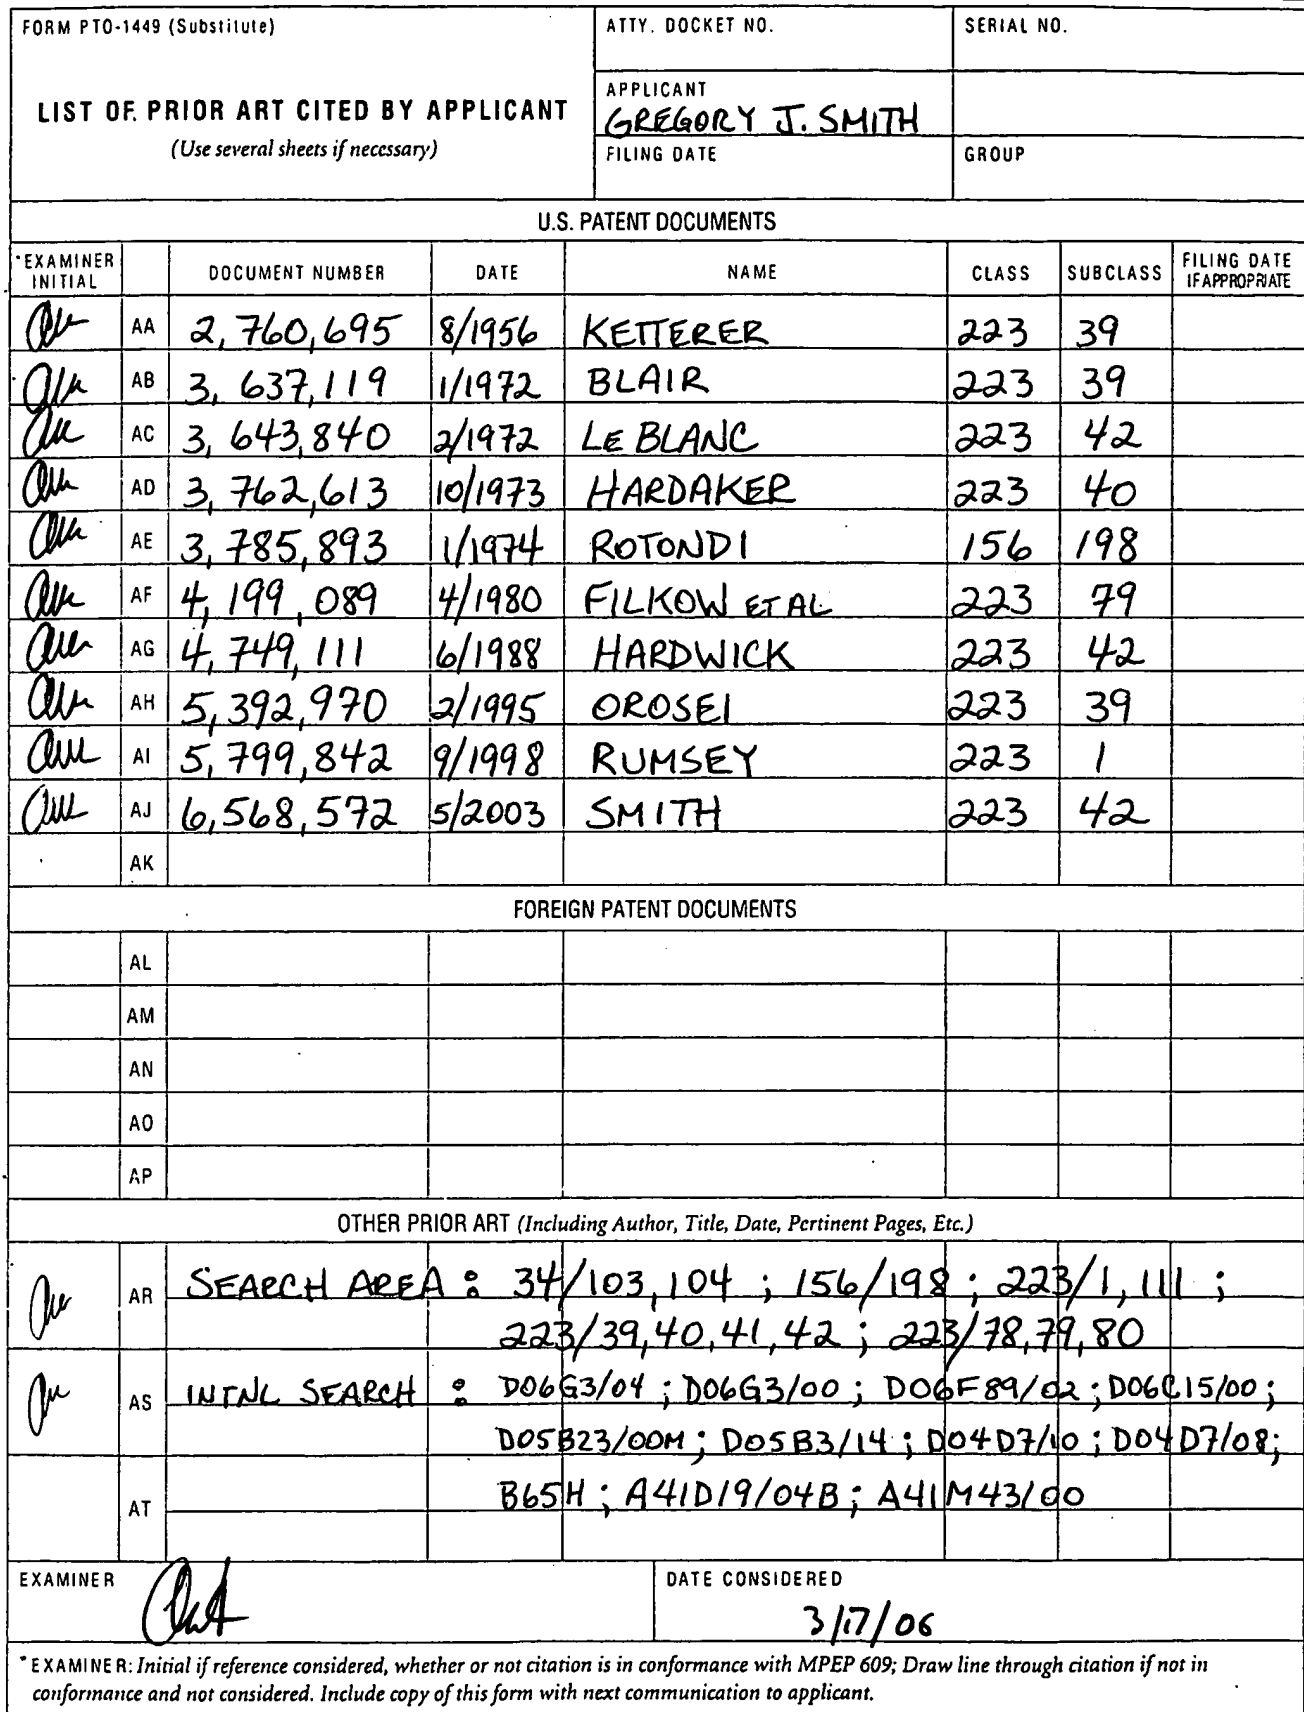 FORM PTO-1449 (Substitute)
ATTY. DOCKET NO.
SERIAL NO.
LIST OF PRIOR ART CITED BY APPLICANT
(Use several sheets if necessary)
APPLICANT
GREGORY J. SMITH
FILING DATE
GROUP
U.S. PATENT DOCUMENTS
*EXAMINER INITIAL DOCUMENT NUMBER DATE NAME CLASS SUBCLASS FILING DATE IF APPROPRIATE
AA 2,760,695 8/1956 KETTERER 223 39
AB 3,637,119 1/1972 BLAIR 223 39
AC 3,643,840 2/1972 LE BLANC 223 42
AD 3,762,613 10/1973 HARDAKER 223 40
AE 3,785,893 1/1974 ROTONDI 156 198
AF 4,199,089 4/1980 FILKOW ET AL 223 79
AG 4,749,111 6/1988 HARDWICK 223 42
AH 5,392,970 2/1995 OROSEI 223 39
AI 5,799,842 9/1998 RUMSEY 223 1
AJ 6,568,572 5/2003 SMITH 223 42
AK
FOREIGN PATENT DOCUMENTS
AL
AM
AN
AO
AP
OTHER PRIOR ART (Including Author, Title, Date, Pertinent Pages, Etc.)
AR SEARCH AREA : 34/103,104 ; 156/198 ; 223/1,111 ;
223/39,40,41,42 ; 223/78,79,80
AS INTNL SEARCH : D06G3/04 ; D06G3/00 ; D06F89/02 ; D06C15/00 ;
D05B23/00M ; D05B3/14 ; D04D7/10 ; D04D7/08;
AT B65H ; A41D19/04B ; A41M43/00
EXAMINER
DATE CONSIDERED
3/17/06
*EXAMINER: Initial if reference considered, whether or not citation is in conformance with MPEP 609; Draw line through citation if not in
conformance and not considered. Include copy of this form with next communication to applicant.